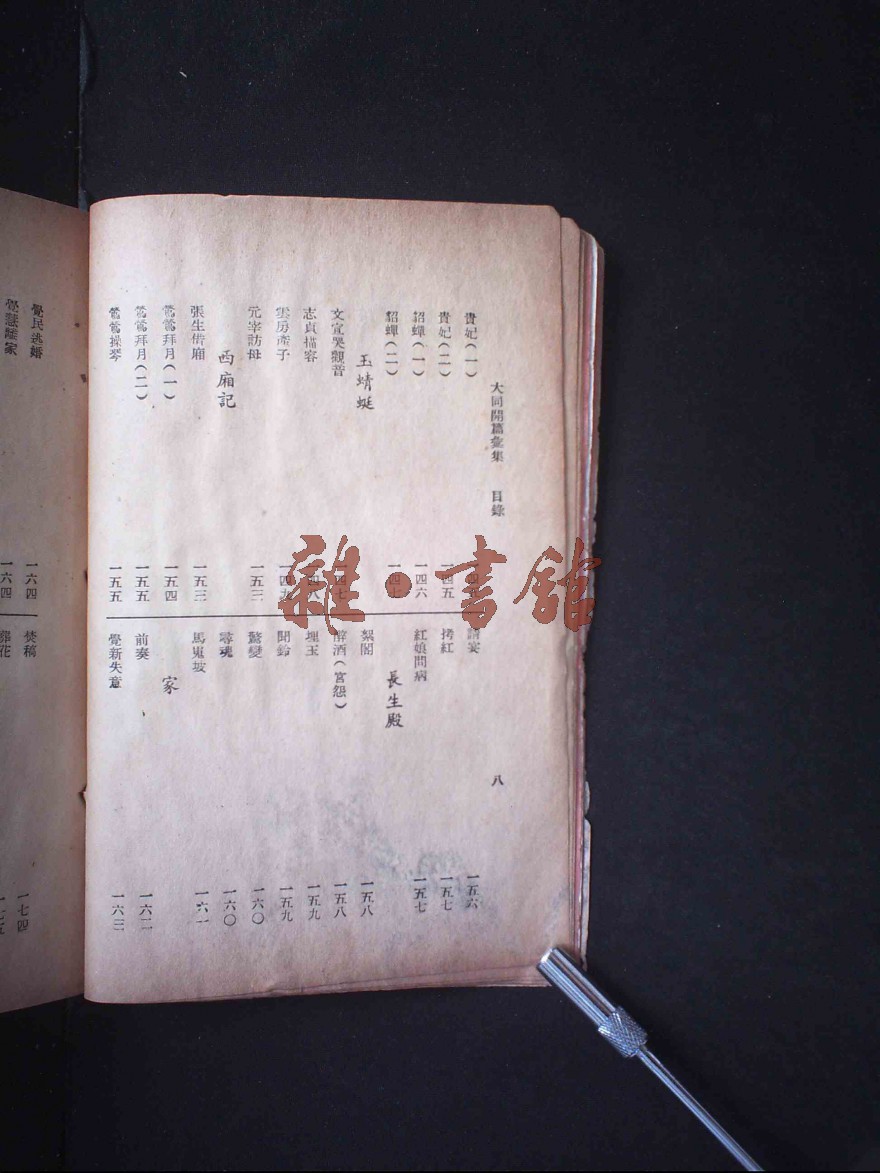 大同開篇彙集 目錄 八
貴妃(一)
貴妃(二) 一四五
貂蟬(一) 一四六
貂蟬(二) 一四七
玉蜻蜓
文宣哭觀音 一四七
志貞描容 一四八
雲房產子 一四九
元宰訪母 一五三
西廂記
張生借廂 一五三
鶯鶯拜月(一) 一五四
鶯鶯拜月(二) 一五五
鶯鶯操琴 一五五
請宴 一五六
拷紅 一五七
紅娘問病 一五七
長生殿
絮閣 一五八
醉酒(宮怨) 一五八
埋玉 一五九
聞鈴 一五九
驚變 一六〇
尋魂 一六〇
馬嵬坡 一六一
家
前奏 一六二
覺新失意 一六三
覺民逃婚 一六四
覺慧離家 一六四
焚稿 一七四
葬花
雜·書館